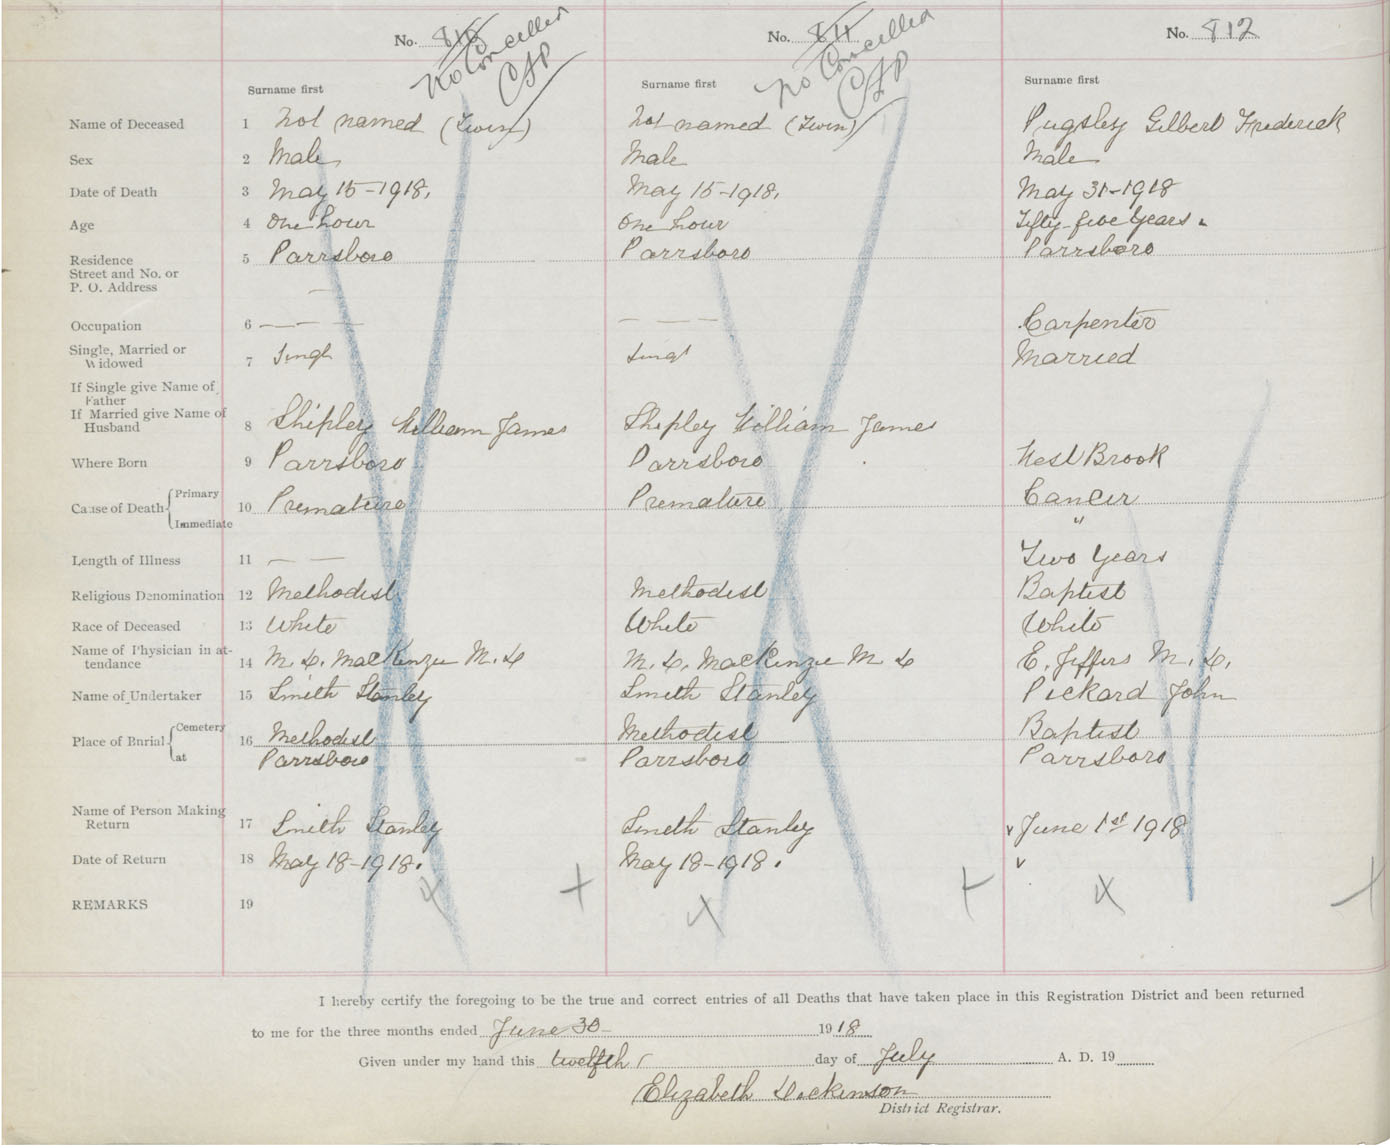 No. 810 No. 811 No. 812
No Cancelled No Cancelled
CJP CJP
Surname first Surname first Surname first
Name of Deceased 1 Not named (Twin) Not named (Twin) Pugsley Gilbert Frederick
Sex 2 Male Male Male
Date of Death 3 May 15-1918. May 15-1918. May 31-1918
Age 4 One hour One hour Fifty-five Years.
Residence 5 Parrsboro Parrsboro Parrsboro
Street and No. or
P. O. Address —
Occupation 6 — — — — — — Carpenter
Single, Married or
Widowed 7 Singl Singl Married
If Single give Name of
Father
If Married give Name of
Husband 8 Shipley William James Shipley William James
Where Born 9 Parrsboro Parrsboro West Brook
Cause of Death { Primary 10 Premature Premature Cancer
Immediate "
Length of Illness 11 — — Two Years
Religious Denomination 12 Methodist Methodist Baptist
Race of Deceased 13 White White White
Name of Physician in at-
tendance 14 M. D. MacKenzie M. D M. D. MacKenzie M. D E. Jeffers M. D.
Name of Undertaker 15 Smith Stanley Smith Stanley Pickard John
Place of Burial { Cemetery 16 Methodist Methodist Baptist
at Parrsboro Parrsboro Parrsboro
Name of Person Making
Return 17 Smith Stanley Smith Stanley June 1st 1918
Date of Return 18 May 18-1918. May 18-1918.
REMARKS 19
I hereby certify the foregoing to be the true and correct entries of all Deaths that have taken place in this Registration District and been returned
to me for the three months ended June 30- 1918
Given under my hand this twelfth day of July A. D. 19
Elizabeth Dickinson
District Registrar.